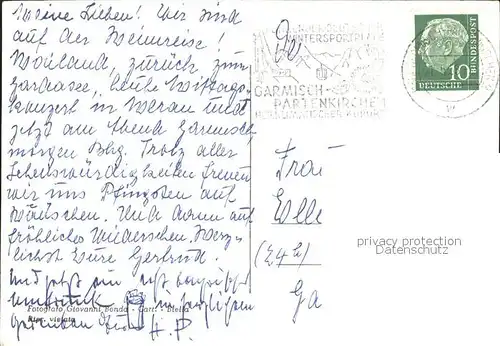 Meine Lieben! Wir sind
auf der Heimreise!
Mailand, zurück zum
Gardasee, heute Mittags-
konzert in Meran und
jetzt am Abend Garmisch,
morgen Bbg. Trotz aller
Sehenswürdigkeiten freuen
wir uns Pfingsten auf
Und darum auf
fröhliches Wiedersehen. Herz-
lichst Eure Gertrud.
Und jetzt ein
Fotografo Giovanni Bonda - Cart. - Biella
Ripr. vietata
H.P.
WINTERSPORTPLATZ
GARMISCH-
PARTENKIRCHEN
HEILKLIMATISCHER KURORT
10
DEUTSCHE
BUNDESPOST
Frau
Elle
privacy protection
Datenschutz